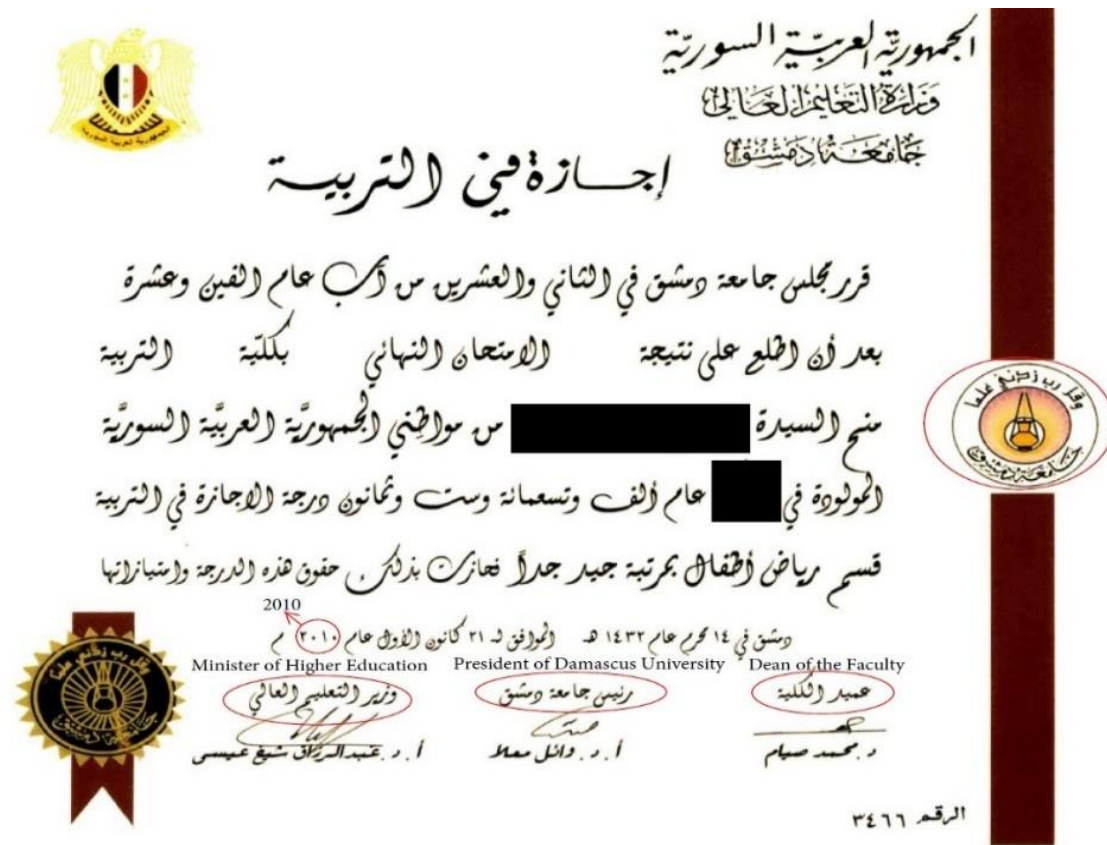 الجمهورية العربية السورية
وزارة التعليم العالي
جامعة دمشق
إجازة في التربية
الجمهورية العربية السورية
قرر مجلس جامعة دمشق في الثاني والعشرين من آب عام الفين وعشرة
بعد أن اطلع على نتيجة الامتحان النهائي بكليّة التربية
منح السيدة من مواطني الجمهوريَّة العربيَّة السوريَّة
المولودة في عام ألف وتسعمائة وست وثمانون درجة الاجازة في التربية
قسم رياض أطفال بمرتبة جيد جداً فحازت بذلك حقوق هذه الدرجة وامتيازاتها
وقل رب زدني علما
جامعة دمشق
2010
دمشق في ١٤ محرم عام ١٤٣٢ هـ الموافق لـ ٢١ كانون الأول عام ٢٠١٠ م
Minister of Higher Education President of Damascus University Dean of the Faculty
عميد الكلية رئيس جامعة دمشق وزير التعليم العالي
د. محمد صيام أ. د. وائل معلا أ. د. عبد الرزاق شيخ عيسى
وقل رب زدني علما
جامعة دمشق
الرقم ٣٤٦٦